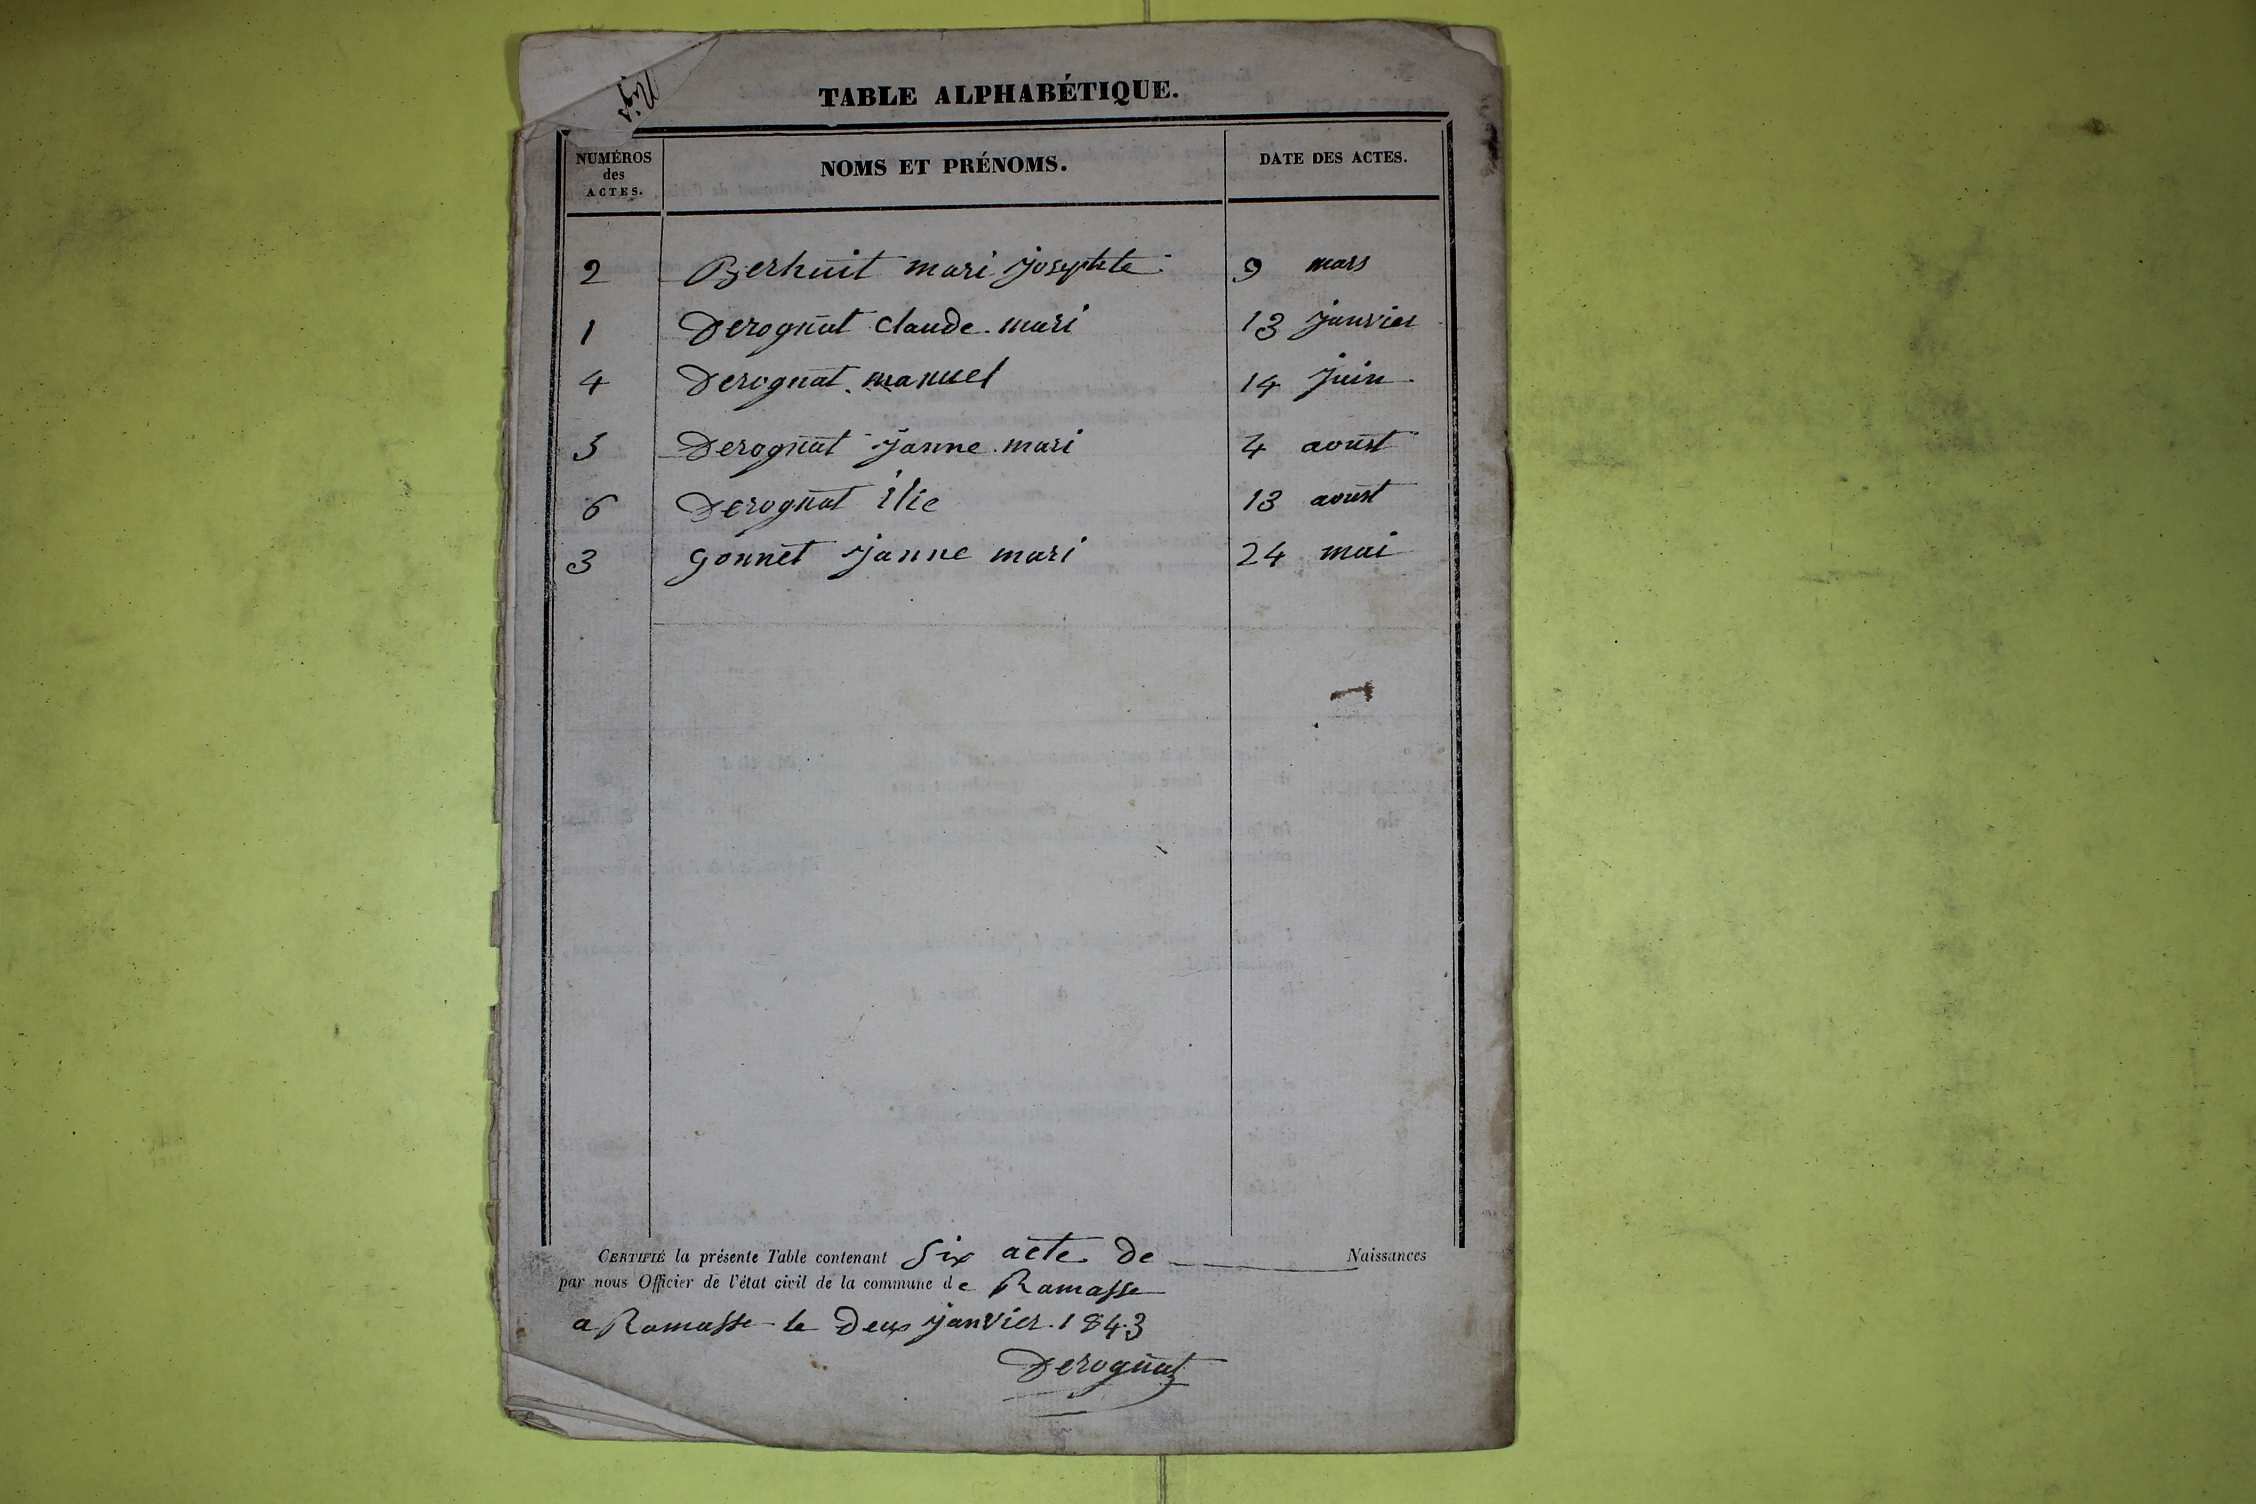 TABLE ALPHABÉTIQUE.
NUMÉROS des ACTES. NOMS ET PRÉNOMS. DATE DES ACTES.
2 Berhuit mari josephte 9 mars
1 Derognat claude mari 13 janvier
4 Derognat manuel 14 juin
5 Derognat janne mari 4 aoust
6 Derognat élie 13 aoust
3 gonnet janne mari 24 mai
CERTIFIÉ la présente Table contenant Six acte de Naissances
par nous Officier de l'état civil de la commune de Ramasse
a Ramasse le Deux janvier 1843
Derognat